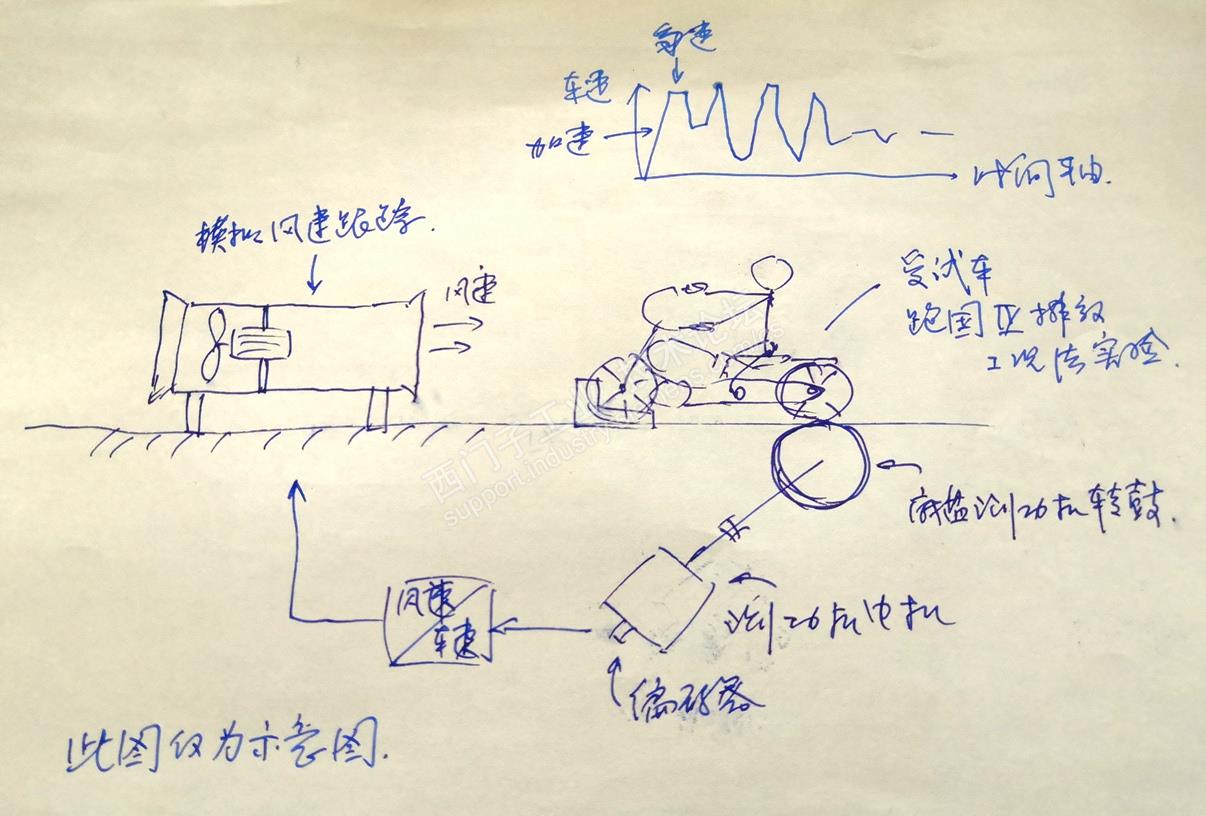 匀速
车速
加速
时间轴.
模拟风速跟踪.
风速
受试车
跑国Ⅳ排放
工况法实验.
底盘测功机转鼓.
风速
车速
测功机电机
编码器
此图仅为示意图.
西门子工业技术论坛
support.industry.siemens.com/cs